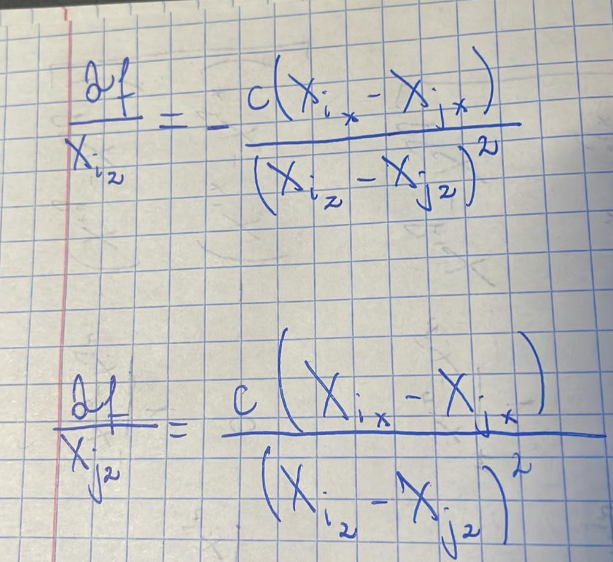 ∂f/x_{i_z} = - c(x_{i_x} - x_{j_x})/(x_{i_z} - x_{j_z})^2
∂f/x_{j_z} = c(x_{i_x} - x_{j_x})/(x_{i_z} - x_{j_z})^2